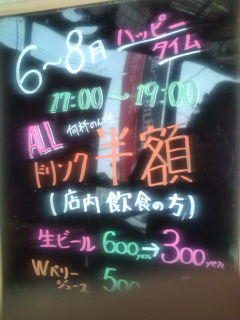 6〜8月 ハッピー
タイム
17:00〜19:00
ALL 何杯のんでも
ドリンク 半額
(店内飲食の方)
生ビール 600yen→300yen
Wベリー
ジュース 500